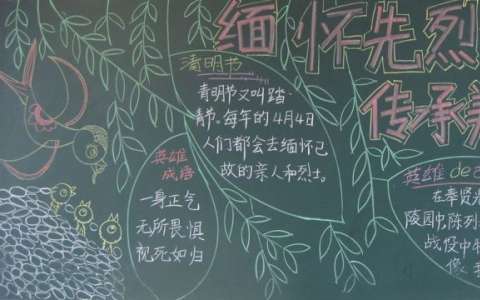 缅怀先烈
传承美
清明节
青明节又叫踏
青节。每年的4月4日
人们都会去缅怀已
故的亲人和烈士。
英雄
成语
一身正气
无所畏惧
视死如归
英雄de
在奉贤
陵园忠陈列
战役中
像